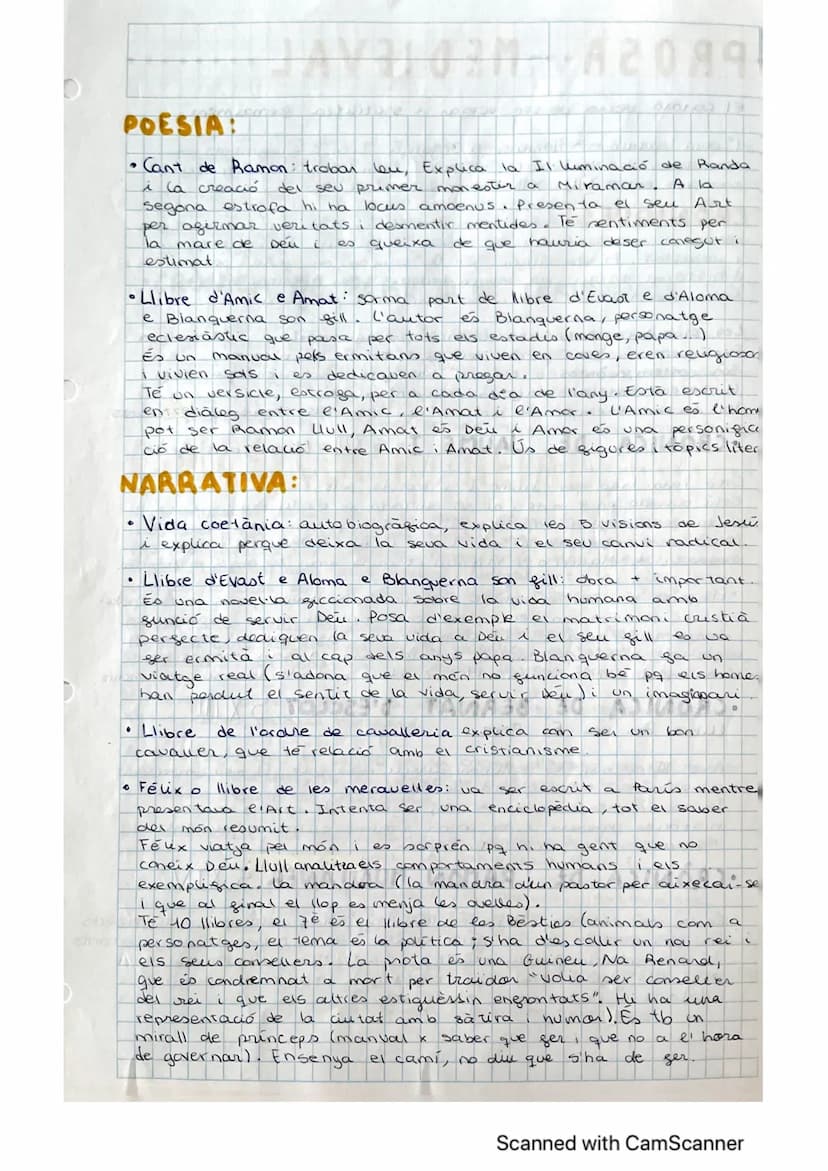 POESIA:
• Cant de Ramon: trobar leu, Explica la Il·luminació de Randa
i la creació del seu primer monestir a Miramar. A la
segona estrofa hi ha locus amoenus. Presenta el seu Art
per afirmar veritats i desmentir mentides. Té sentiments per
la mare de Déu i es queixa de que hauria deser conegut i
estimat
• Llibre d'Amic e Amat: forma part de llibre d'Evast e d'Aloma
e Blanquerna son fill. L'autor és Blanquerna, personatge
eclesiàstic que passa per tots els estadis (monge, papa...)
És un manual pels ermitans que viven en coves, eren religiosos
i vivien sols i es dedicaven a pregar.
Té un versicle, estrofa, per a cada dia de l'any. Està escrit
en diàleg entre l'Amic, l'Amat i l'Amor. L'Amic és l'hom
pot ser Ramon Llull, Amat és Déu i Amor és una personifica
ció de la relació entre Amic i Amat. Ús de figures i tòpics liter
NARRATIVA:
• Vida coetània: autobiogràfica, explica les 5 visions de Jesú
i explica perque deixa la seva vida i el seu canvi radical.
• Llibre d'Evast e Aloma e Blanquerna son fill: obra + important.
És una novel·la ficcionada sobre la vida humana amb
funció de servir Déu. Posa d'exemple el matrimoni cristià
perfecte, dediquen la seva vida a Déu i el seu fill es va
fer ermità i al cap dels anys papa. Blanquerna fa un
viatge real (s'adona que el món no funciona bé pq els home
han perdut el sentit de la vida, servir Déu) i un imaginari.
• Llibre de l'ordre de cavalleria explica com ser un bon
cavaller, que té relació amb el cristianisme.
• Fèlix o llibre de les meravelles: va ser escrit a París mentre
presentava l'Art. Intenta ser una enciclopèdia, tot el saber
del món resumit.
Fèlix viatja pel món i es sorprèn pq hi ha gent que no
coneix Déu. Llull analitza els comportaments humans i els
exemplifica. La mandra (la mandra d'un pastor per aixecar-se
i que al final el llop es menja les ovelles).
Té 10 llibres, el 7è és el llibre de les Bèsties (animals com a
personatges, el tema és la política; s'ha d'escollir un nou rei i
els seus consellers. La prota és una Guineu, Na Renard,
que és condremnat a mort per traïdor "volia ser conseller
del rei i que els altres estiguèssin enfrontats". Hi ha una
representació de la ciutat amb sàtira i humor). És tb un
mirall de prínceps (manual x saber que fer i que no a l'hora
de governar). Ensenya el camí, no diu que s'ha de fer.
Scanned with CamScanner